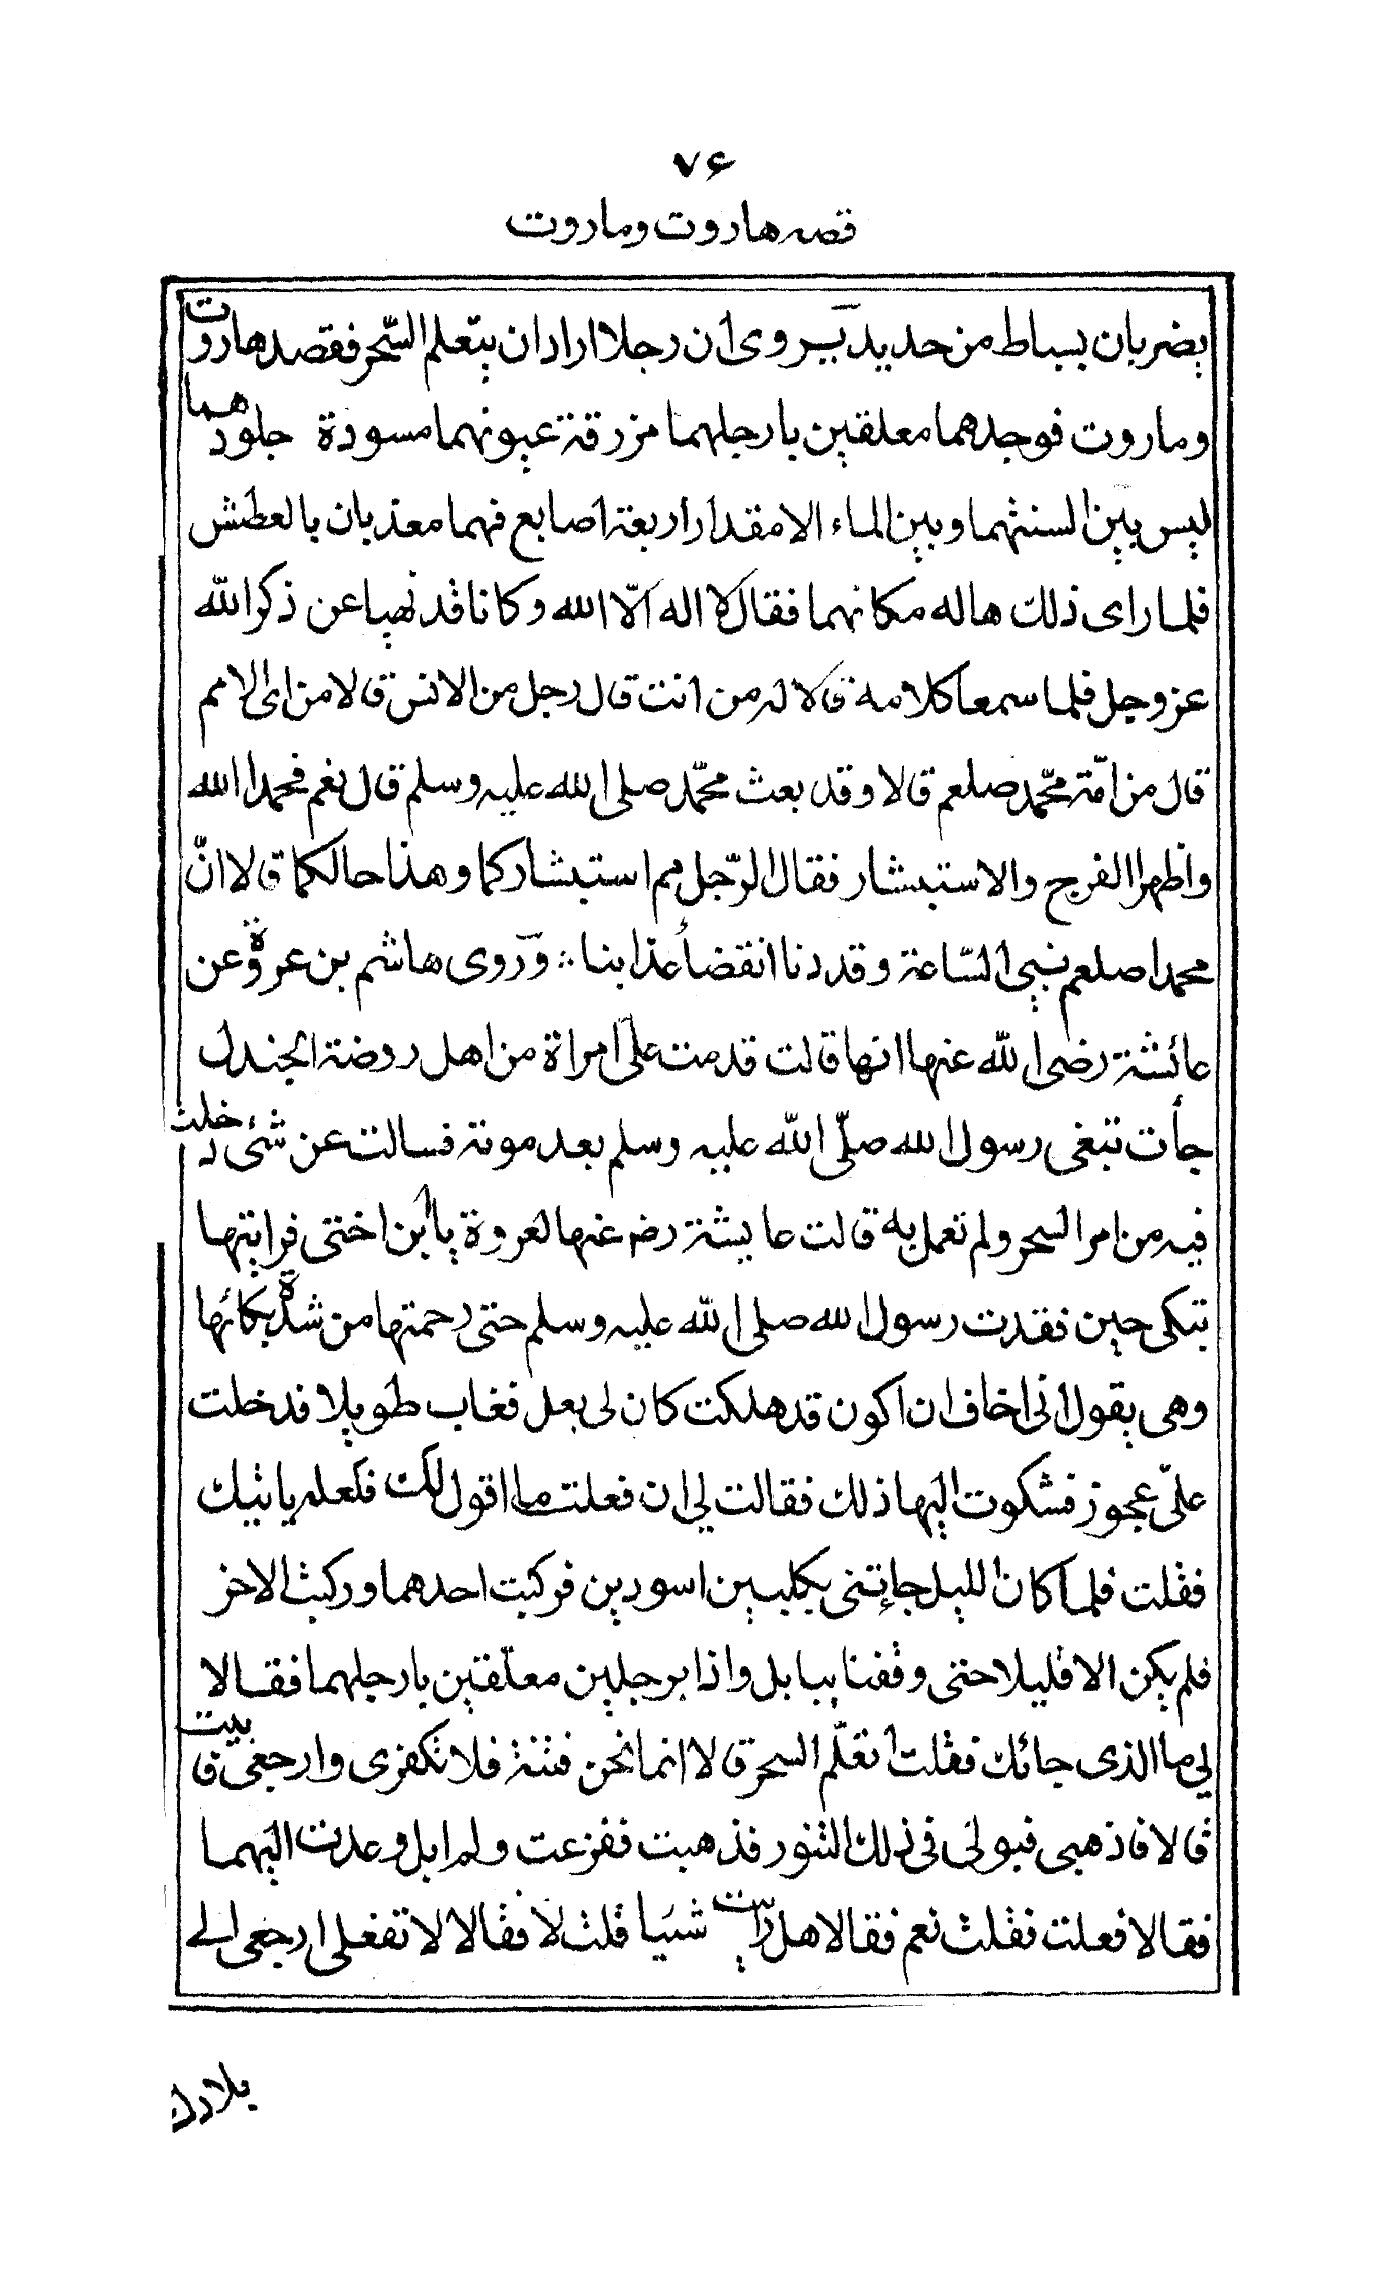 ٧۶
قصه هاروت وماروت
يضربان بسياط من حديد يروى ان رجلا اراد ان يتعلم السّحر فقصد هاروت
وماروت فوجدهما معلقين بارجلهما مزرقة عيونهما مسودة جلودهما
ليس بين السنتهما وبين الماء الا مقدار اربعة اصابع فهما معذبان بالعطش
فلما راى ذلك هاله مكانهما فقال لا اله الّا الله وكانا قد نهيا عن ذكر الله
عز وجل فلما سمعا كلامه قالا له من انت قال رجل من الانس قالا من اى الامم
قال من امّة محمّد صلعم قالا وقد بعث محمّد صلى الله عليه وسلم قال نعم فحمدا الله
واظهرا الفرح والاستبشار فقال الرّجل مم استبشاركما وهذا حالكما قالا انّ
محمدا صلعم نبى السّاعة وقد دنا انقضأ عذابنا وروى هاشم بن عروة عن
عائشة رضى الله عنها انها قالت قدمت علىّ امراة من اهل روضة الجندل
جأت تبغى رسول الله صلّى الله عليه وسلم بعد موته فسالت عن شئ دخلت
فيه من امر السحر ولم تعمل به قالت عايشة رضـ عنها لعروة يا ابن اختى فرايتها
تبكى حين فقدت رسول الله صلى الله عليه وسلم حتى رحمتها من شدّة بكائها
وهى يقول انى اخاف ان اكون قد هلكت كان لى بعل فغاب طويلا فدخلت
علىّ عجوز فشكوت اليها ذلك فقالت لى ان فعلت ما اقول لك فلعله ياتيك
فقلت فلما كان الليل جاءتنى بكلبين اسودين فركبت احدهما وركبت الاخر
فلم يكن الا قليلا حتى وقفنا ببابل واذا برجلين معلّقين بارجلهما فقالا
لى ما الذى جائك فقلت أتعلّم السحر قالا انما نحن فتنة فلا تكفرى وارجعى فابيت
قالا فاذهبى فبولى فى ذلك التنور فذهبت ففزعت ولم ابل وعدت اليهما
فقالا فعلت فقلت نعم فقالا هل رايت شيئا قلت لا فقالا لا تفعلى ارجعى الى
بلادك